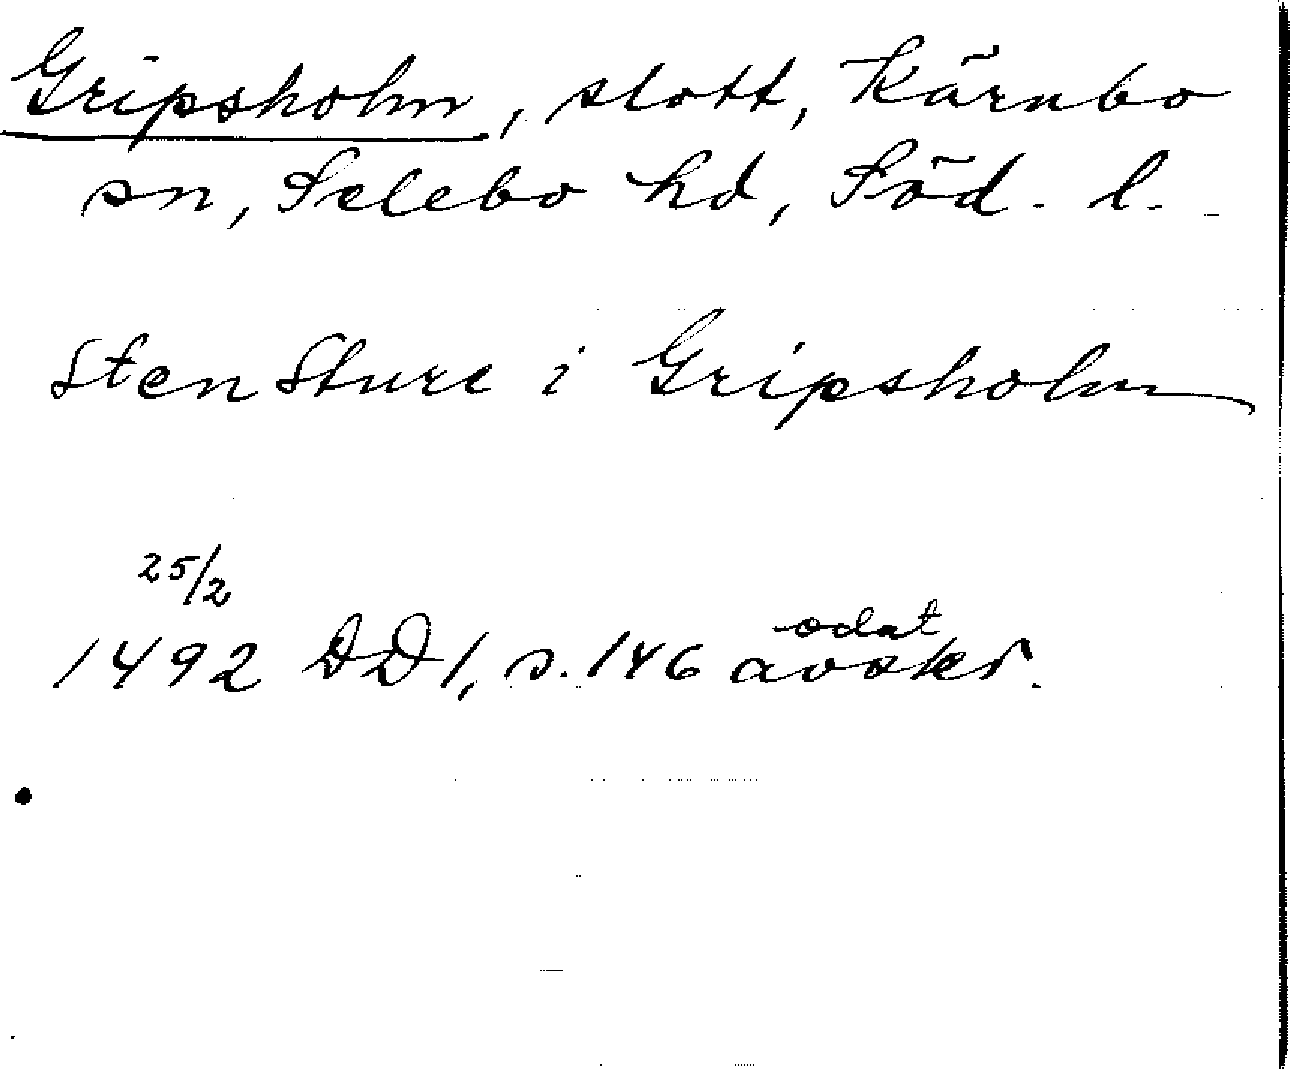 Gripsholm, slott, Kärnbo
sn, Selebo hd, Söd. l.
Sten Sture i Gripsholm
25/2
odat
1492 DD1, s. 146 avskr.